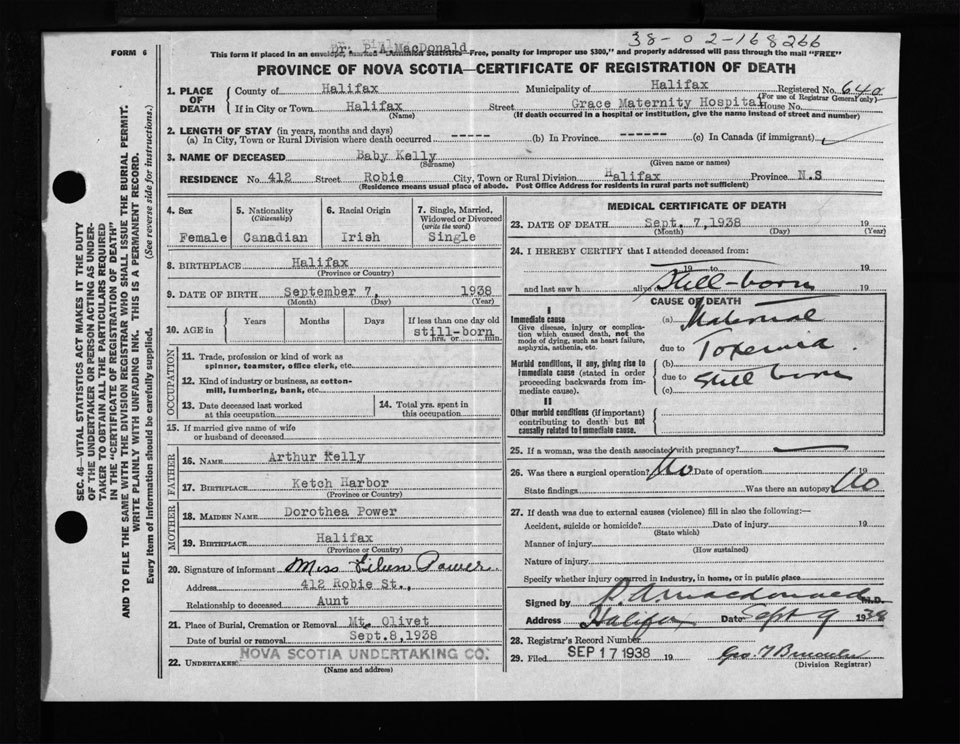 38-02-168266
Dr. P A MacDonald
FORM 6
This form if placed in an envelope, marked "Dominion Statistics—Free, penalty for improper use $300," and properly addressed will pass through the mail "FREE"
PROVINCE OF NOVA SCOTIA—CERTIFICATE OF REGISTRATION OF DEATH
1. PLACE OF DEATH
County of Halifax Municipality of Halifax Registered No. 640
(For use of Registrar General only)
If in City or Town Halifax Street Grace Maternity Hospital House No.
(Name) (If death occurred in a hospital or institution, give the name instead of street and number)
2. LENGTH OF STAY (in years, months and days)
(a) In City, Town or Rural Division where death occurred ----- (b) In Province ------ (c) In Canada (if immigrant)
3. NAME OF DECEASED Baby Kelly
(Surname) (Given name or names)
RESIDENCE No. 412 Street Robie City, Town or Rural Division Halifax Province N.S
(Residence means usual place of abode. Post Office Address for residents in rural parts not sufficient)
4. Sex
Female
5. Nationality
(Citizenship)
Canadian
6. Racial Origin
Irish
7. Single, Married, Widowed or Divorced
(write the word)
Single
8. BIRTHPLACE Halifax
(Province or Country)
9. DATE OF BIRTH September 7, 1938
(Month) (Day) (Year)
10. AGE in
Years Months Days If less than one day old
still-born
hrs. or min.
OCCUPATION
11. Trade, profession or kind of work as
spinner, teamster, office clerk, etc.
12. Kind of industry or business, as cotton-
mill, lumbering, bank, etc.
13. Date deceased last worked
at this occupation
14. Total yrs. spent in
this occupation
15. If married give name of wife
or husband of deceased
FATHER
16. NAME Arthur Kelly
17. BIRTHPLACE Ketch Harbor
(Province or Country)
MOTHER
18. MAIDEN NAME Dorothea Power
19. BIRTHPLACE Halifax
(Province or Country)
20. Signature of informant Miss Eileen Power
Address 412 Robie St.,
Relationship to deceased Aunt
21. Place of Burial, Cremation or Removal Mt. Olivet
Date of burial or removal Sept.8,1938
22. UNDERTAKER NOVA SCOTIA UNDERTAKING CO.
(Name and address)
MEDICAL CERTIFICATE OF DEATH
23. DATE OF DEATH Sept. 7,1938 19
(Month) (Day) (Year)
24. I HEREBY CERTIFY that I attended deceased from:
19 to 19
and last saw h alive on Still-born 19
CAUSE OF DEATH
I
Immediate cause
Give disease, injury or complica-
tion which caused death, not the
mode of dying, such as heart failure,
asphyxia, asthenia, etc.
(a) Maternal
due to Toxemia.
Morbid conditions, if any, giving rise to
immediate cause (stated in order
proceeding backwards from im-
mediate cause).
(b)
due to Still born
(c)
II
Other morbid conditions (if important)
contributing to death but not
causally related to immediate cause.
25. If a woman, was the death associated with pregnancy?
26. Was there a surgical operation? No Date of operation 19
State findings Was there an autopsy? No
27. If death was due to external causes (violence) fill in also the following:—
Accident, suicide or homicide? Date of injury 19
(State which)
Manner of injury
(How sustained)
Nature of injury
Specify whether injury occurred in industry, in home, or in public place
Signed by P. A. MacDonald M.D.
Address Halifax Date Sept 9 1938
28. Registrar's Record Number
29. Filed SEP 17 1938 19
(Division Registrar)
SEC. 46—VITAL STATISTICS ACT MAKES IT THE DUTY
OF THE UNDERTAKER OR PERSON ACTING AS UNDER-
TAKER TO OBTAIN ALL THE PARTICULARS REQUIRED
IN THE "CERTIFICATE OF REGISTRATION OF DEATH"
AND TO FILE THE SAME WITH THE DIVISION REGISTRAR WHO SHALL ISSUE THE BURIAL PERMIT.
WRITE PLAINLY WITH UNFADING INK. THIS IS A PERMANENT RECORD.
Every item of information should be carefully supplied. (See reverse side for instructions.)